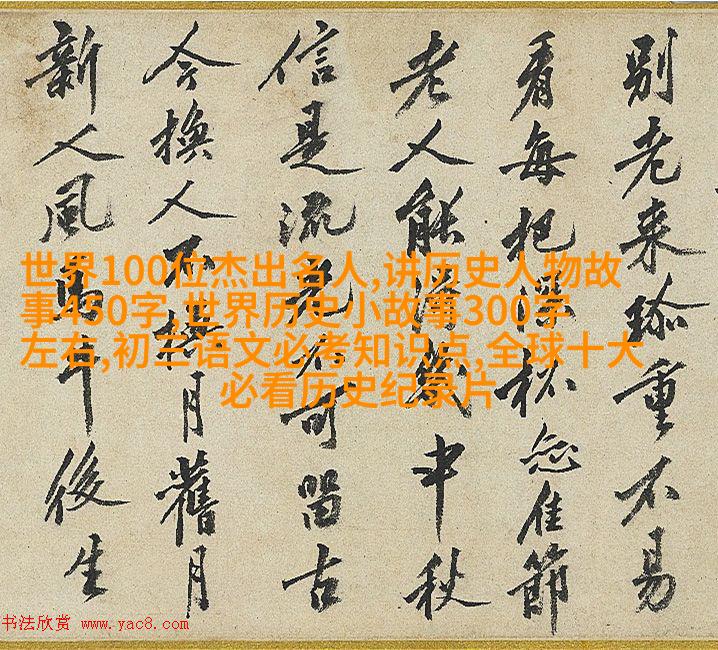 别老来珎重不易
看每把深杯佳節
老人能得幾中秋
信是流光不可留古
今換人不換月舊月
新人風馬牛後生
世界100位杰出名人,讲历史人物故
事450字,世界历史小故事300字
左右,初三语文必考知识点,全球十大
必看历史纪录片
书法欣赏 www.yac8.com